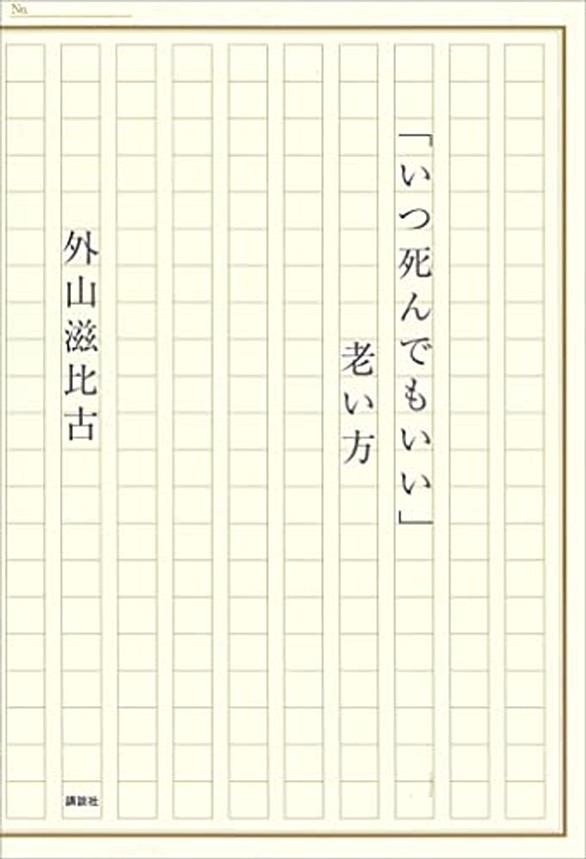 No.
「いつ死んでもいい」
老い方
外山滋比古
講談社